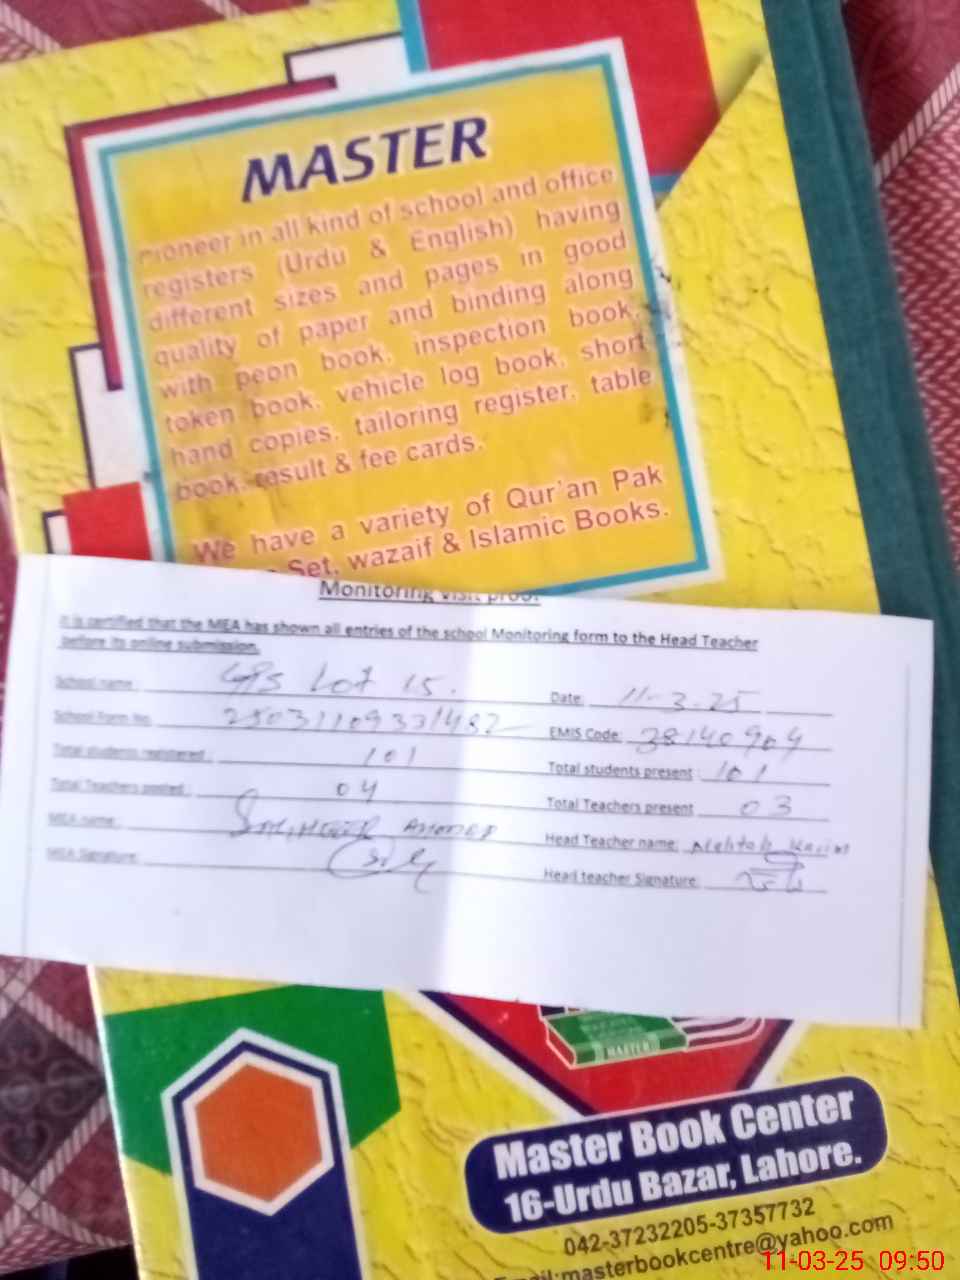 MASTER
Pioneer in all kind of school and office
registers (Urdu & English) having
different sizes and pages in good
quality of paper and binding along
with peon book, inspection book,
token book, vehicle log book, short
hand copies, tailoring register, table
book, result & fee cards.
We have a variety of Qur'an Pak
Set, wazaif & Islamic Books.
Monitoring visit proof
It is certified that the MEA has shown all entries of the school Monitoring form to the Head Teacher
before its online submission.
School name: GPS Lot 15. Date: 11-3-25
School Form No. EMIS Code: 38140904
Total students registered: 101 Total students present: 101
Total Teachers posted: 04 Total Teachers present 03
MEA name: Head Teacher name:
MEA Signature: Head teacher Signature:
MASTER
Master Book Center
16-Urdu Bazar, Lahore.
042-37232205-37357732
Email:masterbookcentre@yahoo.com
11-03-25 09:50